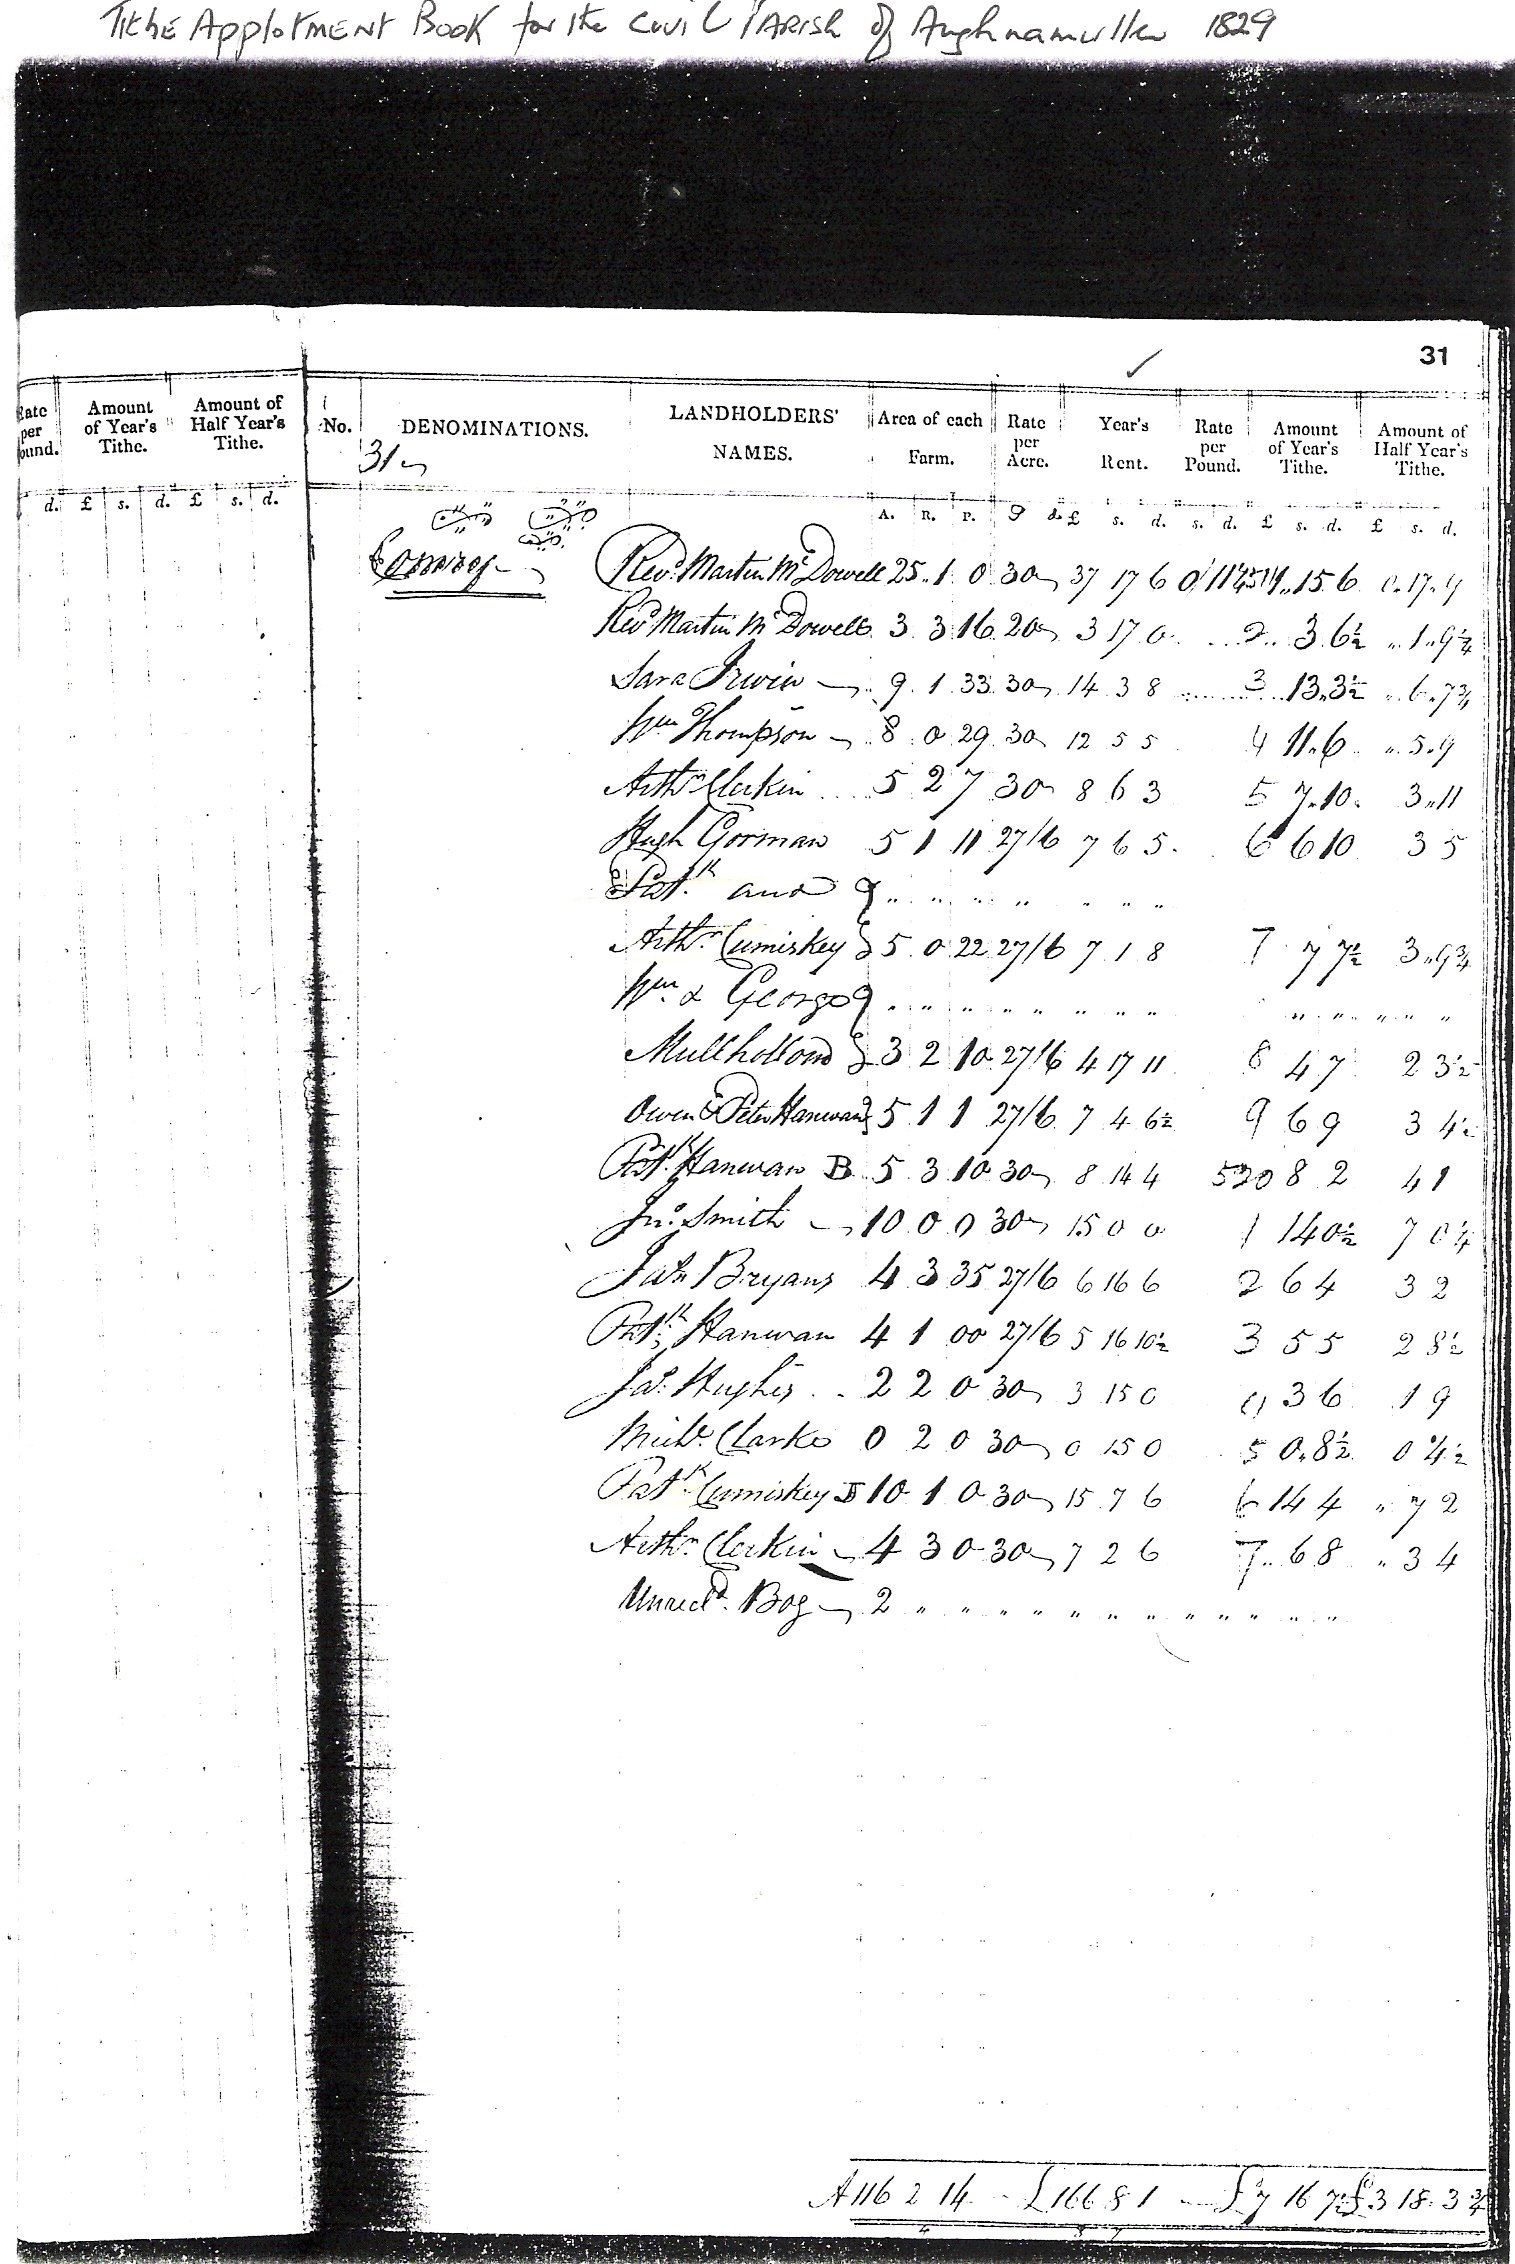 Tithe Applotment Book for the Civil Parish of Aughnamullen 1829
31
Rate per Pound. Amount of Year's Tithe. Amount of Half Year's Tithe. No. DENOMINATIONS. LANDHOLDERS' NAMES. Area of each Farm. Rate per Acre. Year's Rent. Rate per Pound. Amount of Year's Tithe. Amount of Half Year's Tithe.
31
d. £ s. d. £ s. d. A. R. P. d. £ s. d. s. d. £ s. d. £ s. d.
Revd. Martin McDowell 25 1 0 30 37 17 6 0 15 6 0 17 9
Revd. Martin McDowell 3 3 16 20 3 17 0 2 3 6½ " 1 " 9¼
Sara Irwin 9 1 33 30 14 3 8 3 13 3½ " 6 " 7¾
Wm Thompson 8 0 29 30 12 5 5 4 11 6 " 5 9
Arthr. Clerkin 5 2 7 30 8 6 3 5 7 10 3 11
Hugh Gorman 5 1 11 27/6 7 6 5 6 6 10 3 5
Patk. and " " " " " " "
Arthr. Cumiskey 5 0 22 27/6 7 1 8 7 7 7½ 3 9¾
Wm. & George " " " " " " " " " " " " "
Mullholland 3 2 10 27/6 4 17 11 8 4 7 2 3½
Owen & Peter Hanwan 5 1 1 27/6 7 4 6½ 9 6 9 3 4½
Patk. Hanwan B 5 3 10 30 8 14 4 8 2 4 1
Jno. Smith 10 0 0 30 15 0 0 1 14 0½ 7 0¼
Jas. Bryans 4 3 35 27/6 6 16 6 2 6 4 3 2
Patk. Hanwan 4 1 00 27/6 5 16 10½ 3 5 5 2 8½
Jas. Hughes 2 2 0 30 3 15 0 3 6 1 9
Michl. Clarke 0 2 0 30 0 15 0 5 0 8½ 0 4½
Patk. Cumiskey 10 1 0 30 15 7 6 6 14 4 " 7 2
Arthr. Clerkin 4 3 0 30 7 2 6 7 6 8 " 3 4
Unrecd. Bog 2 " " " " " " " " " " " "
A 116 2 14 £166 8 1 £7 16 7½ £3 18 3¾